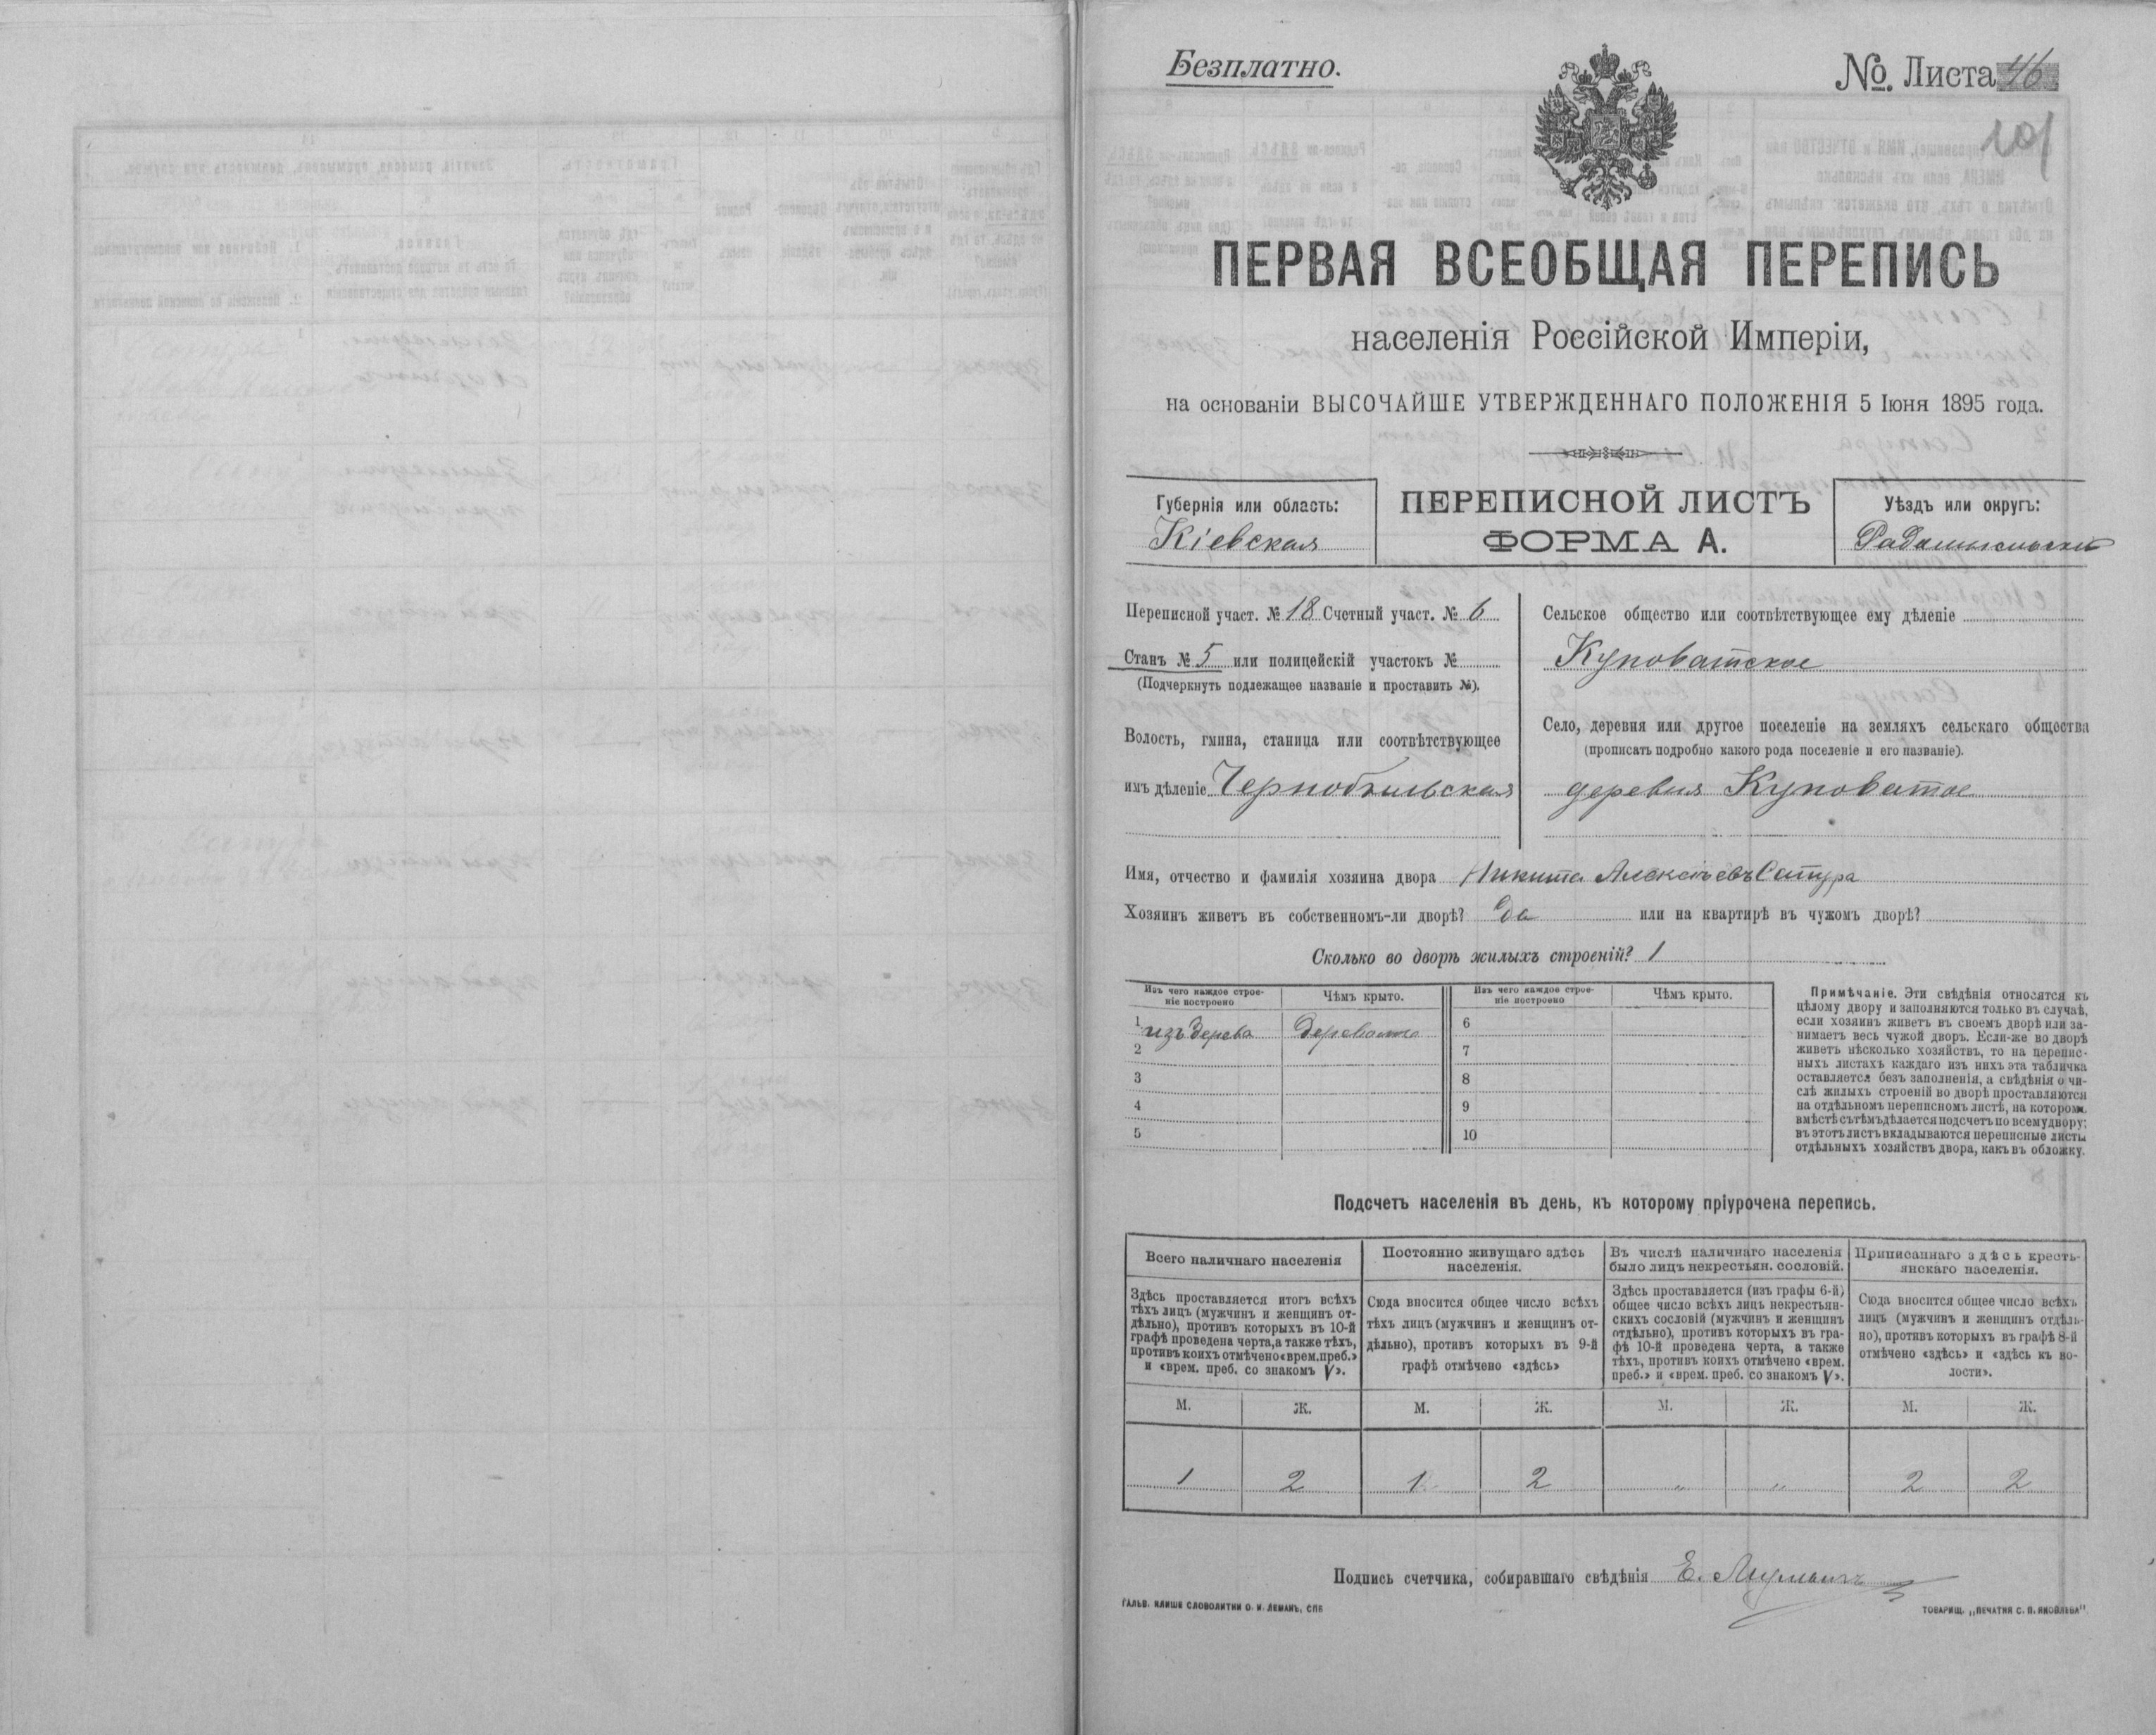 Безплатно.
№. Листа 46
101
ПЕРВАЯ ВСЕОБЩАЯ ПЕРЕПИСЬ
населенія Россійской Имперіи,
на основаніи ВЫСОЧАЙШЕ УТВЕРЖДЕННАГО ПОЛОЖЕНІЯ 5 Іюня 1895 года.
Губернія или область:
Кіевская
ПЕРЕПИСНОЙ ЛИСТЪ
ФОРМА А.
Уѣздъ или округъ:
Переписной участ. № 18 Счетный участ. № 6
Станъ № 5 или полицейскій участокъ №
(Подчеркнуть подлежащее названіе и проставить №).
Волость, гмина, станица или соотвѣтствующее
имъ дѣленіе Чернобыльская
Сельское общество или соотвѣтствующее ему дѣленіе
Куповатское
Село, деревня или другое поселеніе на земляхъ сельскаго общества
(прописать подробно какого рода поселеніе и его названіе).
деревня Куповатое
Имя, отчество и фамилія хозяина двора Никита Алексѣевъ Сапура
Хозяинъ живетъ въ собственномъ-ли дворѣ? Да или на квартирѣ въ чужомъ дворѣ?
Сколько во дворѣ жилыхъ строеній? 1
Изъ чего каждое строе-
ніе построено
Чѣмъ крыто.
Изъ чего каждое строе-
ніе построено
Чѣмъ крыто.
1 изъ дерева
6
2
7
3
8
4
9
5
10
Примѣчаніе. Эти свѣдѣнія относятся къ
цѣлому двору и заполняются только въ случаѣ,
если хозяинъ живетъ въ своемъ дворѣ или за-
нимаетъ весь чужой дворъ. Если-же во дворѣ
живетъ нѣсколько хозяйствъ, то на перепис-
ныхъ листахъ каждаго изъ нихъ эта табличка
оставляется безъ заполненія, а свѣдѣнія о чи-
слѣ жилыхъ строеній во дворѣ проставляются
на отдѣльномъ переписномъ листѣ, на которомъ
вмѣстѣ съ тѣмъ дѣлается подсчетъ по всему двору;
въ этотъ листъ вкладываются переписные листы
отдѣльныхъ хозяйствъ двора, какъ въ обложку.
Подсчетъ населенія въ день, къ которому пріурочена перепись.
Всего наличнаго населенія
Постоянно живущаго здѣсь
населенія.
Въ числѣ наличнаго населенія
было лицъ некрестьян. сословій.
Приписаннаго здѣсь кресть-
янскаго населенія.
Здѣсь проставляется итогъ всѣхъ
тѣхъ лицъ (мужчинъ и женщинъ от-
дѣльно), противъ которыхъ въ 10-й
графѣ проведена черта, а также тѣхъ,
противъ коихъ отмѣчено «врем. преб.»
и «врем. преб. со знакомъ V».
Сюда вносится общее число всѣхъ
тѣхъ лицъ (мужчинъ и женщинъ от-
дѣльно), противъ которыхъ въ 9-й
графѣ отмѣчено «здѣсь»
Здѣсь проставляется (изъ графы 6-й)
общее число всѣхъ лицъ некрестьян-
скихъ сословій (мужчинъ и женщинъ
отдѣльно), противъ которыхъ въ гра-
фѣ 10-й проведена черта, а также
тѣхъ, противъ коихъ отмѣчено «врем.
преб.» и «врем. преб. со знакомъ V».
Сюда вносится общее число всѣхъ
лицъ (мужчинъ и женщинъ отдѣль-
но), противъ которыхъ въ графѣ 8-й
отмѣчено «здѣсь» и «здѣсь къ во-
лости».
М. Ж. М. Ж. М. Ж. М. Ж.
1 2 1 2 " " 2 2
Подпись счетчика, собиравшаго свѣдѣнія Е.
ГАЛЬВ. КЛИШЕ СЛОВОЛИТНИ О. И. ЛЕМАНЪ, СПБ
ТОВАРИЩ. „ПЕЧАТНЯ С. П. ЯКОВЛЕВА"